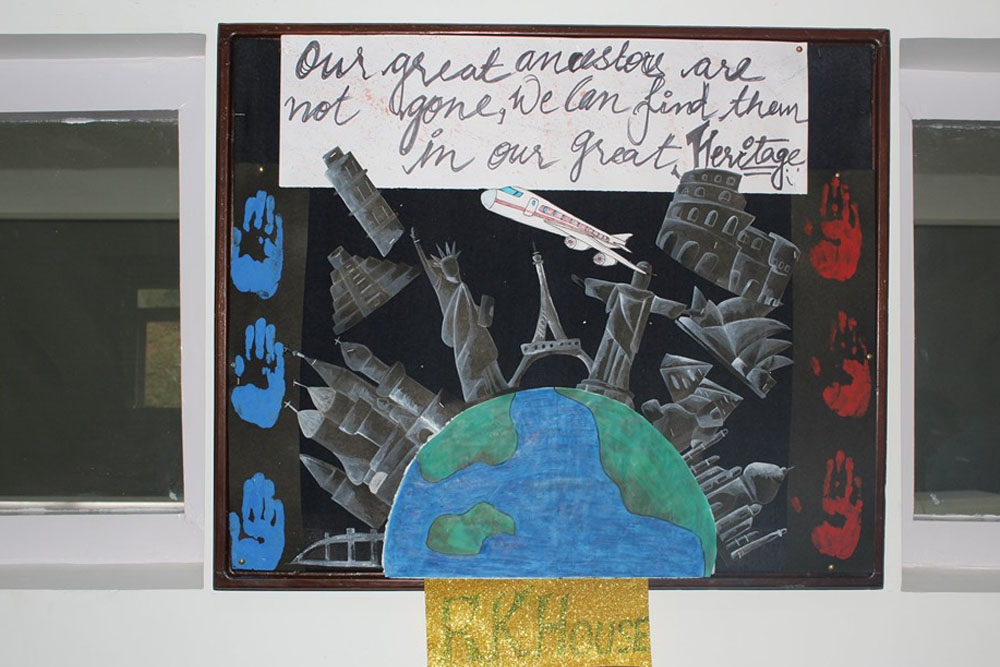 Our great ancestors are
not gone, We Can find them
in our great Heritage
R.K.House